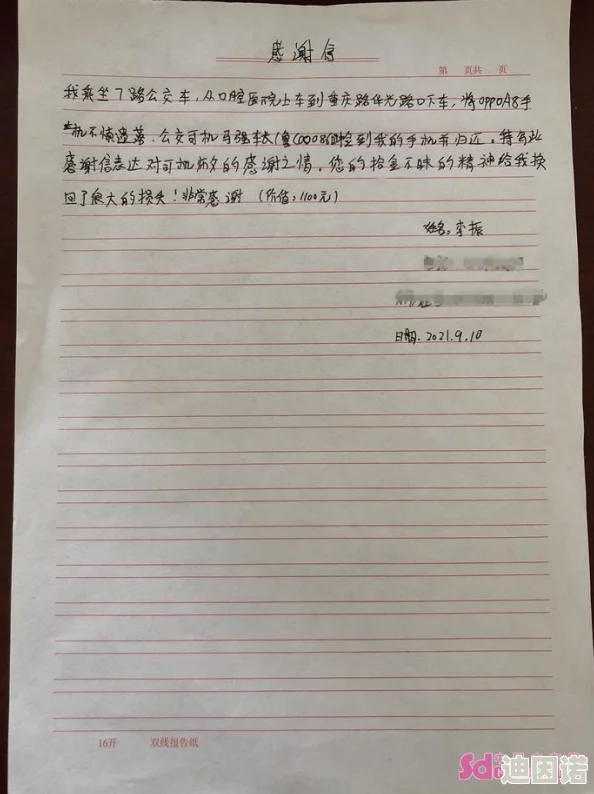 感谢信
第 页共 页
我乘坐7路公交车,从口腔医院上车到重庆路华光路口下车,将OPPOA8手
机不慎遗落.公交司机马强 捡到我的手机并归还,特写此
感谢信表达对司机师父的感谢之情,您的拾金不昧的精神给我换
回了很大的损失!非常感谢 (价值:1100元)
姓名:李振
日期.2021.9.10
16开 双线报告纸
Sd 迪因诺